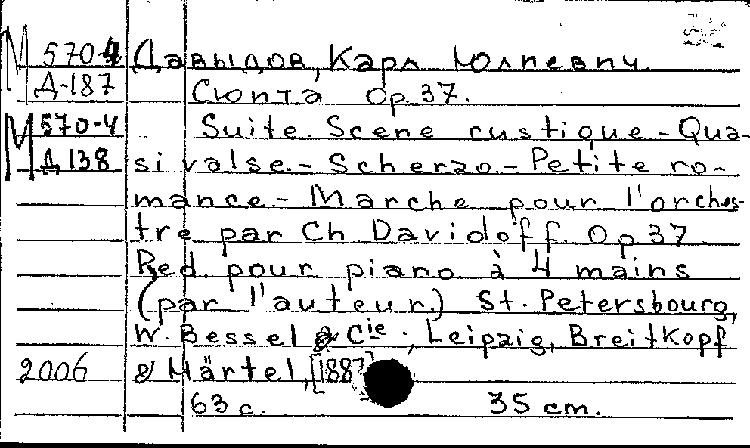 М 570-4 Давыдов, Карл Юлиевич.
Д-187 Сюита Ор 37.
М 570-4 Suite. Scene rustique - Qua-
Д 138 si valse. - Scherzo - Petite ro-
mance - Marche pour l'orches-
tre par Ch Davidoff. Op 37.
Red. pour piano à 4 mains
(par l'auteur.) St. Petersbourg,
W. Bessel & Cie., Leipzig, Breitkopf
2006 & Härtel, [1887]
63 с. 35 cm.